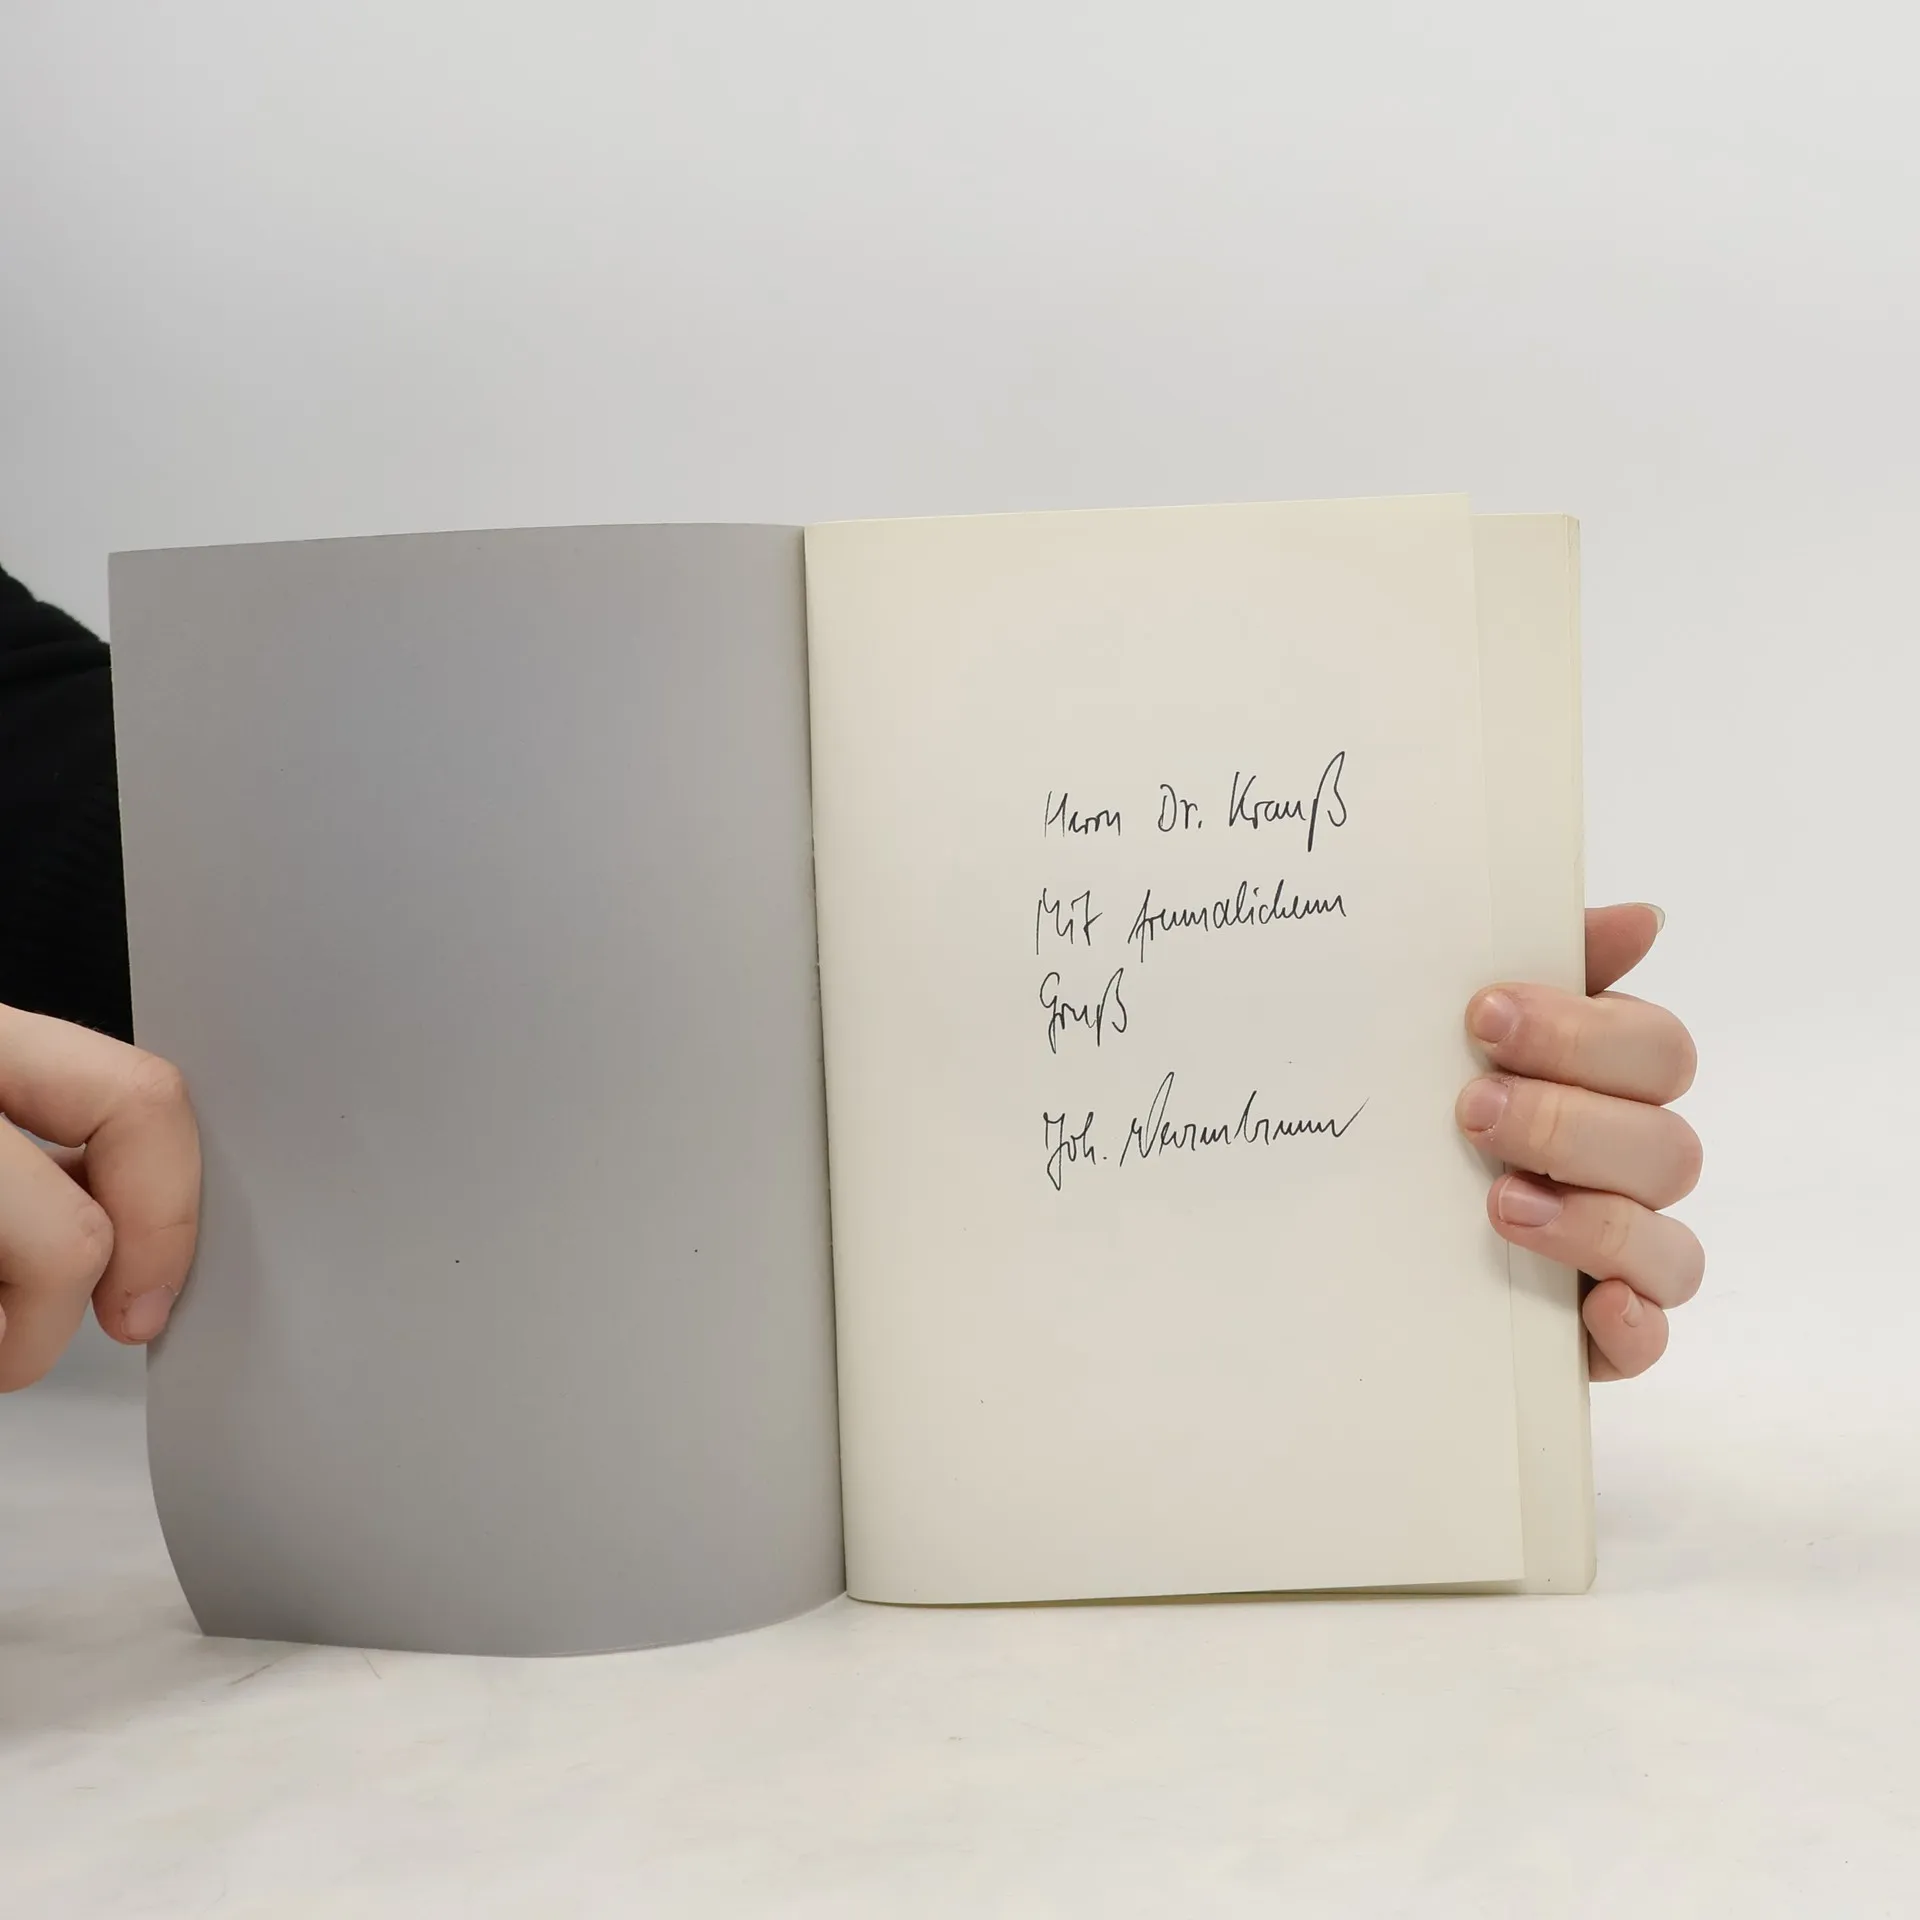 Herrn Dr. Krauß
Mit freundlichem
Gruß
Joh.